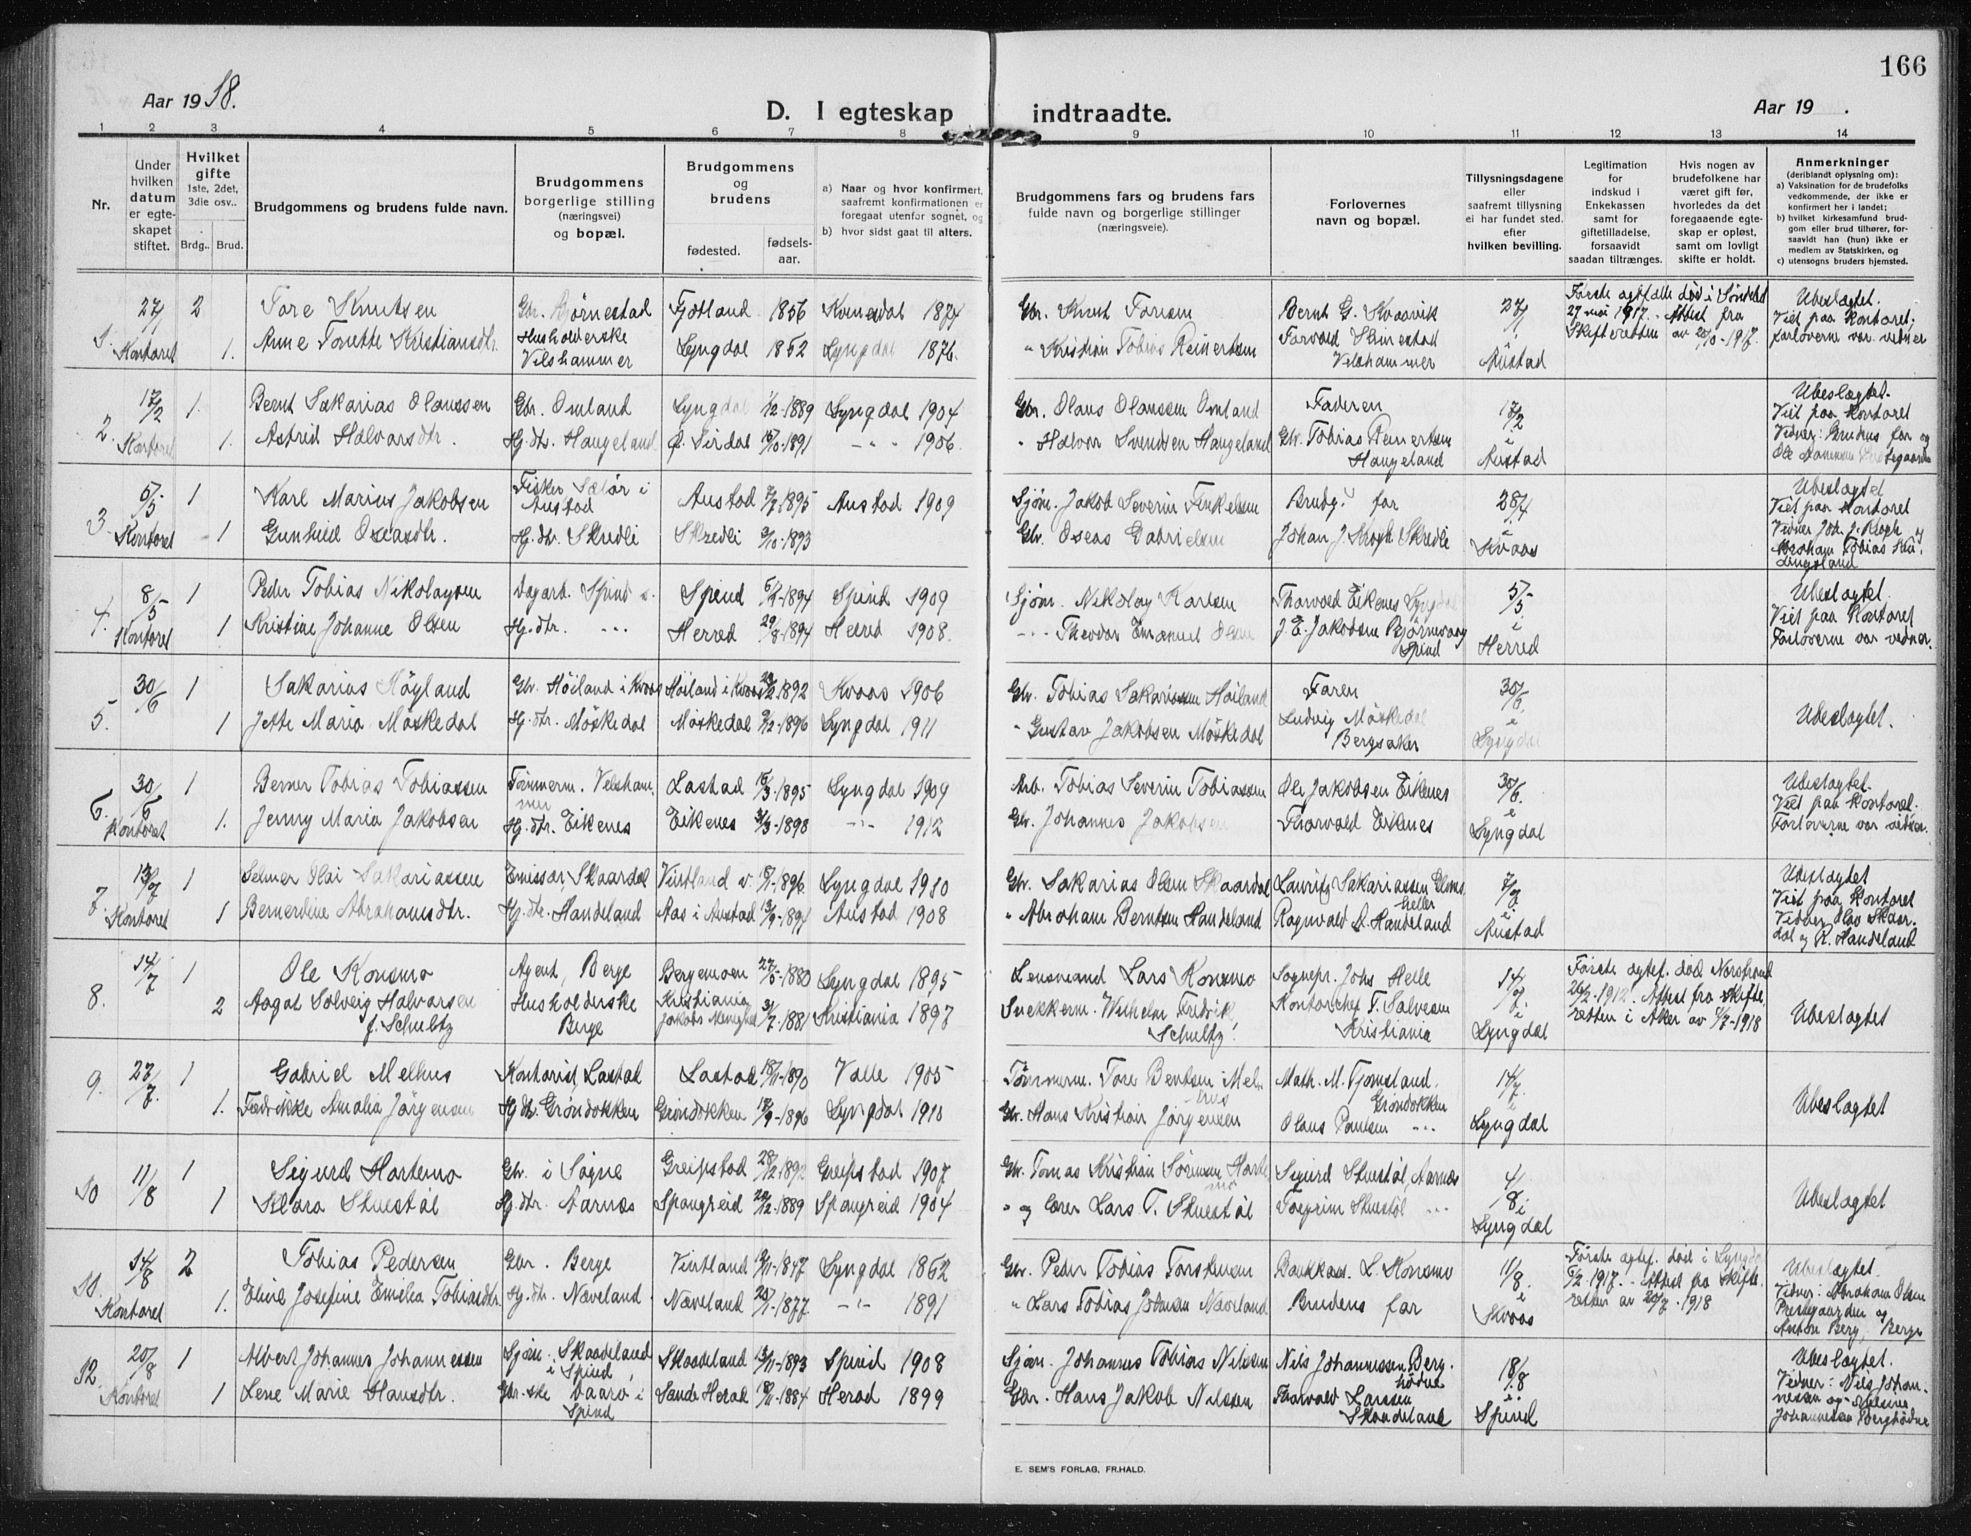 166
Aar 1918.
D. I egteskap indtraadte.
Aar 19 .
1 2 3 4 5 6 7 8 9 10 11 12 13 14
Nr.
Under hvilken datum er egteskapet stiftet.
Hvilket gifte 1ste, 2det, 3die osv..
Brdg.. Brud.
Brudgommens og brudens fulde navn.
Brudgommens borgerlige stilling (næringsvei) og bopæl.
Brudgommens og brudens
fødested.
fødselsaar.
a) Naar og hvor konfirmert, saafremt konfirmationen er foregaat utenfor sognet, og
b) hvor sidst gaat til alters.
Brudgommens fars og brudens fars fulde navn og borgerlige stillinger (næringsveie).
Forlovernes navn og bopæl.
Tillysningsdagene eller saafremt tillysning ei har fundet sted. efter hvilken bevilling.
Legitimation for indskud i Enkekassen samt for giftetilladelse, forsaavidt saadan tiltrænges.
Hvis nogen av brudefolkene har været gift før, hvorledes da det foregaaende egteskap er opløst, samt om lovligt skifte er holdt.
Anmerkninger (deriblandt oplysning om):
a) Vaksination for de brudefolks vedkommende, der ikke er konfirmert her i landet;
b) hvilket kirkesamfund brudgom eller brud tilhører, forsaavidt han (hun) ikke er medlem av Statskirken, og
c) utensogns bruders hjemsted.
1. 27/1 Kontoret 2 Tore Knutsen Gbr. Bjørnestad Fjotland 1856 Kvinesdal 1874 Gbr. Knut Toresen Bernt G. Kvaavik 27/1 Første egtefælle død i
27 mai 1917. - Attest fra Skifteretten av Ubeslægtet. Viet paa Kontoret, forloverne var vidner
1. Anne Tonette Kristiansdtr. Husholderske Velshammer Lyngdal 1862 Lyngdal 1876. " Kristian Tobias Reinertsen Velshammer Austad
2. 17/2 Kontoret 1. Bernt Sakarias Olaussen Gbr. Omland Lyngdal 1/12-1889 Lyngdal 1904 Gbr. Olaus Olaussen Omland Faderen 17/2 i Austad Ubeslægtet. Viet paa Kontoret Vidner: Brudens far og Ole
1. Astrid Halvorsdtr. Hj. dtr. Haugeland Ø. Sirdal 1891 " " 1906. " Halvor Svendsen Haugeland Gbr. Tobias Reinertsen Haugeland
3. 5/5 Kontoret 1 Karl Marius Jakobsen Fisker Sælør i Austad Austad 1895 Austad 1909 Sjøm. Jakob Severin Brudg. far 28/4 Kvaas Ubeslægtet Viet paa Kontoret
1 Gunhild Oseasdtr. Hj. dtr. Skredli Skredli 9/10-1893 Gbr. Oseas Gabrielsen Johan J. Skredli
4. 8/5 Kontoret 1 Peder Tobias Nikolaysen Dagarb. Spind Spind 1894 Spind 1909 Sjøm. Nikolay Karlsen Thorvald Eikenes Lyngdal 5/5 i Herred Ubeslægtet. Viet paa Kontoret Forloverne var vidner.
1 Kristine Johanne Olsen Hj. dtr. " " Herred 29/8-1894 Herred 1908. " " Theodor Emanuel Olsen J. E. Jakobsen Spind
5. 30/6 1 Sakarias Høyland Gbr. Høiland i Kvaas Høiland i Kvaas 1892 Kvaas 1906 Gbr. Tobias Sakariassen Høiland Faren 30/6. i Lyngdal Ubeslægtet.
1 Jette Maria Møskedal Hj. dtr. Møskedal Møskedal 9/12-1896 Lyngdal 1911 " Gustav Jakobsen Møskedal Ludvig Møskedal Bergsaker
6. 30/6 Kontoret 1 Berner Tobias Tobiassen Tømmerm. Velshammer Lastad 15/3-1895 Lyngdal 1909 Arb. Tobias Severin Tobiassen Ole Jakobsen Eikenes 30/6. i Lyngdal Ubeslægtet. Viet paa Kontoret. Forloverne var vidner.
1. Jenny Maria Jakobsen Hj. dtr. Eikenes Eikenes 3/3-1898 " " 1912 Gbr. Johannes Jakobsen Thorvald Eikenes
7. 13/7 Kontoret 1 Selmer Olai Sakariassen Emissær, Skaardal 1896. Lyngdal 1910 Gbr. Sakarias Olsen Skaardal Lauritz Sakariassen 7/7 i Austad Ubeslægtet Viet paa Kontoret Vidner Olav Skaardal og R. Handeland
1 Bernerdine Abrahamsdtr. Hj. dtr. Handeland Aas i Austad 13/9-1894 Austad 1908 " Abraham Berntsen Handeland Ragnvald A. Handeland
8. 14/7 1 Ole Konsmo Agent, Berge Bergemoen 27/5-1880 Lyngdal 1895 Lensmand Lars Konsmo Sognepr. Johs Helle 14/7. i Lyngdal Første egtef. død
26/2-1912. Attest fra Skifteretten i Aker av 1/7-1918 Ubeslægtet
2 Aagot Solveig Halvorsen f. Schultz Husholderske Berge Kristiania Jakobs Menighed 31/7-1881 Kristiania 1897 Snekkerm. Wilhelm Fredrik Schultz. Kontorchef T. Salvesen Kristiania
9. 27/7. 1 Gabriel Melhus Kontorist Lastad Lastad 18/11-1890 Valle 1905 Tømmerm. Tore Bentsen Melhus Math. M. Tjomsland. Grøndokken 14/7. i Lyngdal Ubeslægtet
1. Fredrikke Amalia Jørgensen Hj. dtr. Grøndokken Grøndokken 1896 Lyngdal 1910 Gbr. Hans Kristian Jørgensen Olaus Paulsen " "
10 11/8 1 Sigurd Hortemo Gbr. i Søgne Greipstad 28/12-1892 Greipstad 1907 Gbr. Tomas Kristian Sørensen Hortemo Sigurd Stuestøl, Aarnæs 4/8 i Lyngdal Ubeslægtet
1 Klara Stuestøl Hj. dtr. Aarnæs Spangreid 1889 Spangreid 1904 " og lærer Lars T. Stuestøl Torgrim Stuestøl " "
11. 14/8 Kontoret 2 Tobias Pedersen Gbr. Berge Virtland 1847 Lyngdal 1862 Gbr. Peder Tobias Torstensen L. Konsmo 11/8. i Kvaas Første egtef. død i Lyngdal
5/2 1917. - Attest fra Skifteretten av 20/7-1918 Ubeslægtet. Vidner: Abraham Olsen Prestgaarden og Anton Berg, Berge
1. Eline Josefine Emelia Tobiasdtr. Hj. dtr. Næveland Næveland 1877 " " 1891 " Lars Tobias Johnsen Næveland Brudens far
12. 20/8 Kontoret 1 Albert Johannes Johannessen Sjøm. Skaadeland i Spind Skaadeland 13/11-1893 Spind 1908 Sjøm. Johannes Tobias Nilssen Nils Johannessen Berghødne 18/8 i Spind Ubeslægtet. Vidner: Nils Johannessen og Johannessen Berghødne
1 Lene Marie Hansdtr. Gbr.-ske Vaarø i Spind Sande Herad 1884 Herad 1899 Gbr. Hans Jakob Nilssen Thorvald Larssen Skaadeland
E. SEM'S FORLAG, FR.HALD.